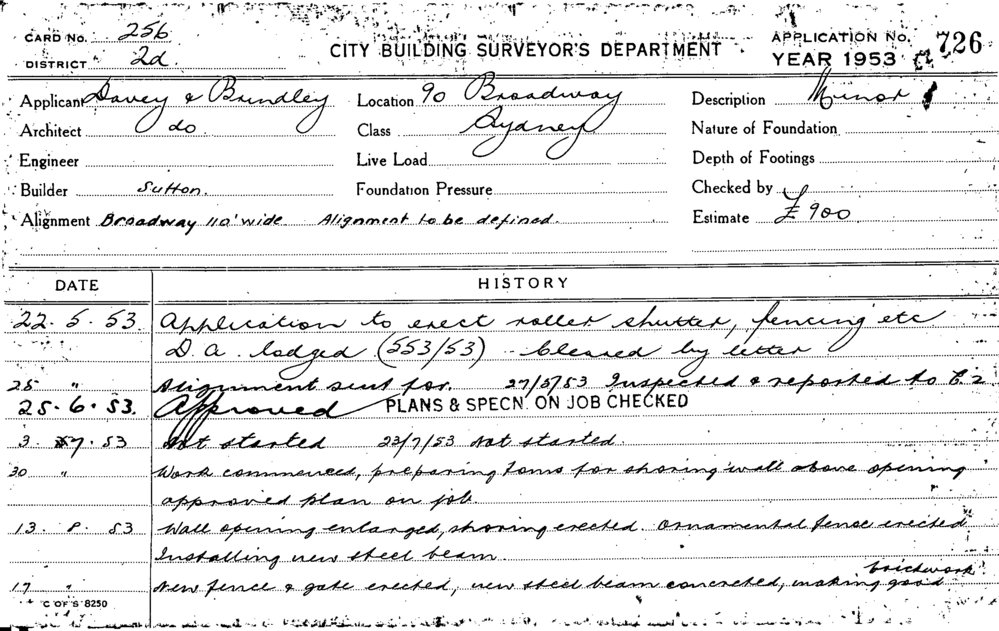 CARD No. 256
DISTRICT 2d.
CITY BUILDING SURVEYOR'S DEPARTMENT
APPLICATION No. 726
YEAR 1953
Applicant Davey & Brindley
Location 90 Broadway
Description Minor
Architect do
Class Sydney
Nature of Foundation
Engineer
Live Load
Depth of Footings
Builder Sutton.
Foundation Pressure
Checked by
Alignment Broadway 110' wide Alignment to be defined.
Estimate £900
DATE HISTORY
22.5.53. Application to erect roller shutter, fencing etc
D.A. lodged (553/53) Cleared by letter
25 " Alignment sent for. 27/5/53 Inspected & reported to C.2.
25.6.53. Approved PLANS & SPECN. ON JOB CHECKED
3. 7.53 Not started 23/7/53 Not started.
30 " Work commenced, preparing for shoring wall above opening
approved plan on job.
13. 8. 53 Wall opening enlarged, shoring erected. Ornamental fence erected
Installing new steel beam.
17 " New fence & gate erected, new steel beam concreted, making good brickwork
C OF S 8250